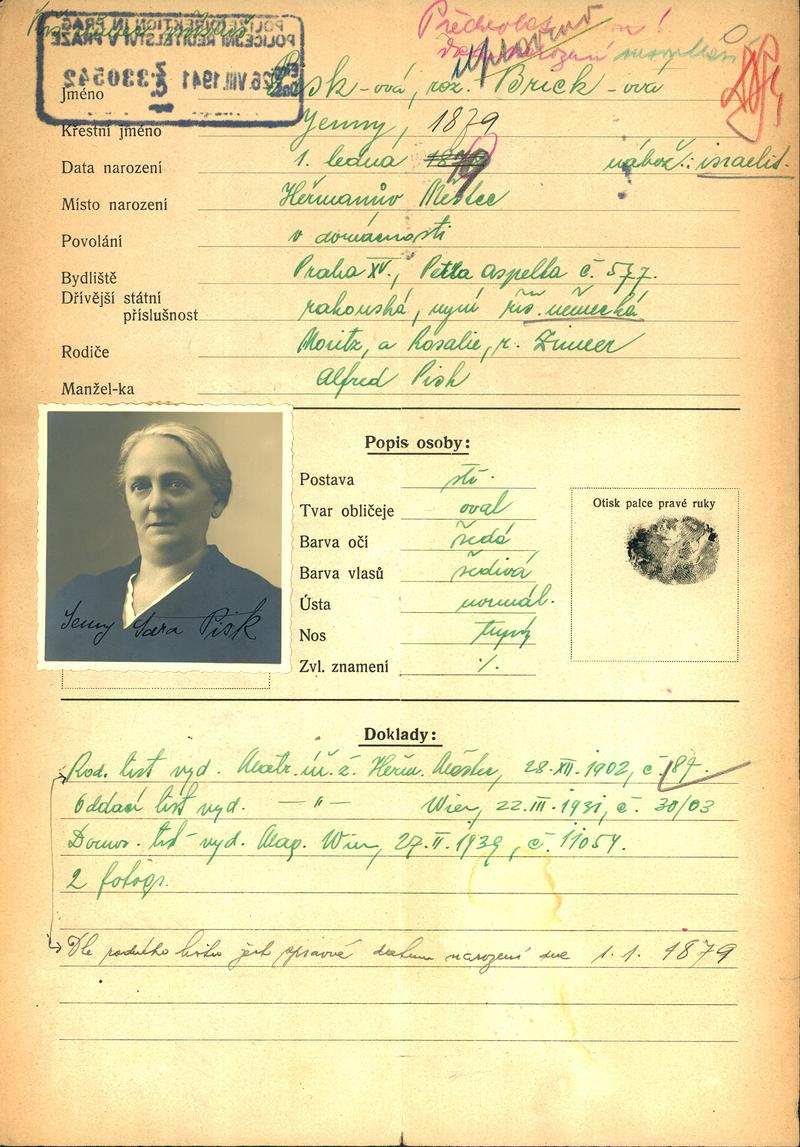 POLIZEIDIREKTION IN PRAG
POLICEJNÍ ŘEDITELSTVÍ V PRAZE
26. VIII. 1941
330542
upraveno
narození nesouhlasí
Jméno Pisk-ová, roz. Brick-ová
Křestní jméno Jenny, 1879
Data narození 1. ledna nábož.: israelit.
Místo narození Heřmanův Městec
Povolání v domácnosti
Bydliště Praha XV., Petra Aspelta č. 577.
Dřívější státní
příslušnost rakouská, nyní říš. německá
Rodiče Moritz, a Rosalie, r. Zinner
Manžel-ka Alfred Pisk
Popis osoby:
Postava stř.
Tvar obličeje oval
Barva očí šedá
Barva vlasů šedivá
Ústa normál.
Nos tupý
Zvl. znamení %
Otisk palce pravé ruky
Jenny Sara Pisk
Doklady:
Rod. list vyd. Matr. iz. ž. Heřm. Městec, 28.XII.1902, č. 187.
Oddací list vyd. — " — Wien, 22.III.1931, č. 30/03
Domov. list vyd. Mag. Wien, 27.II.1939, č. 11054.
2 fotogr.
Dle rodného listu jest správné datum narození dne 1.1. 1879